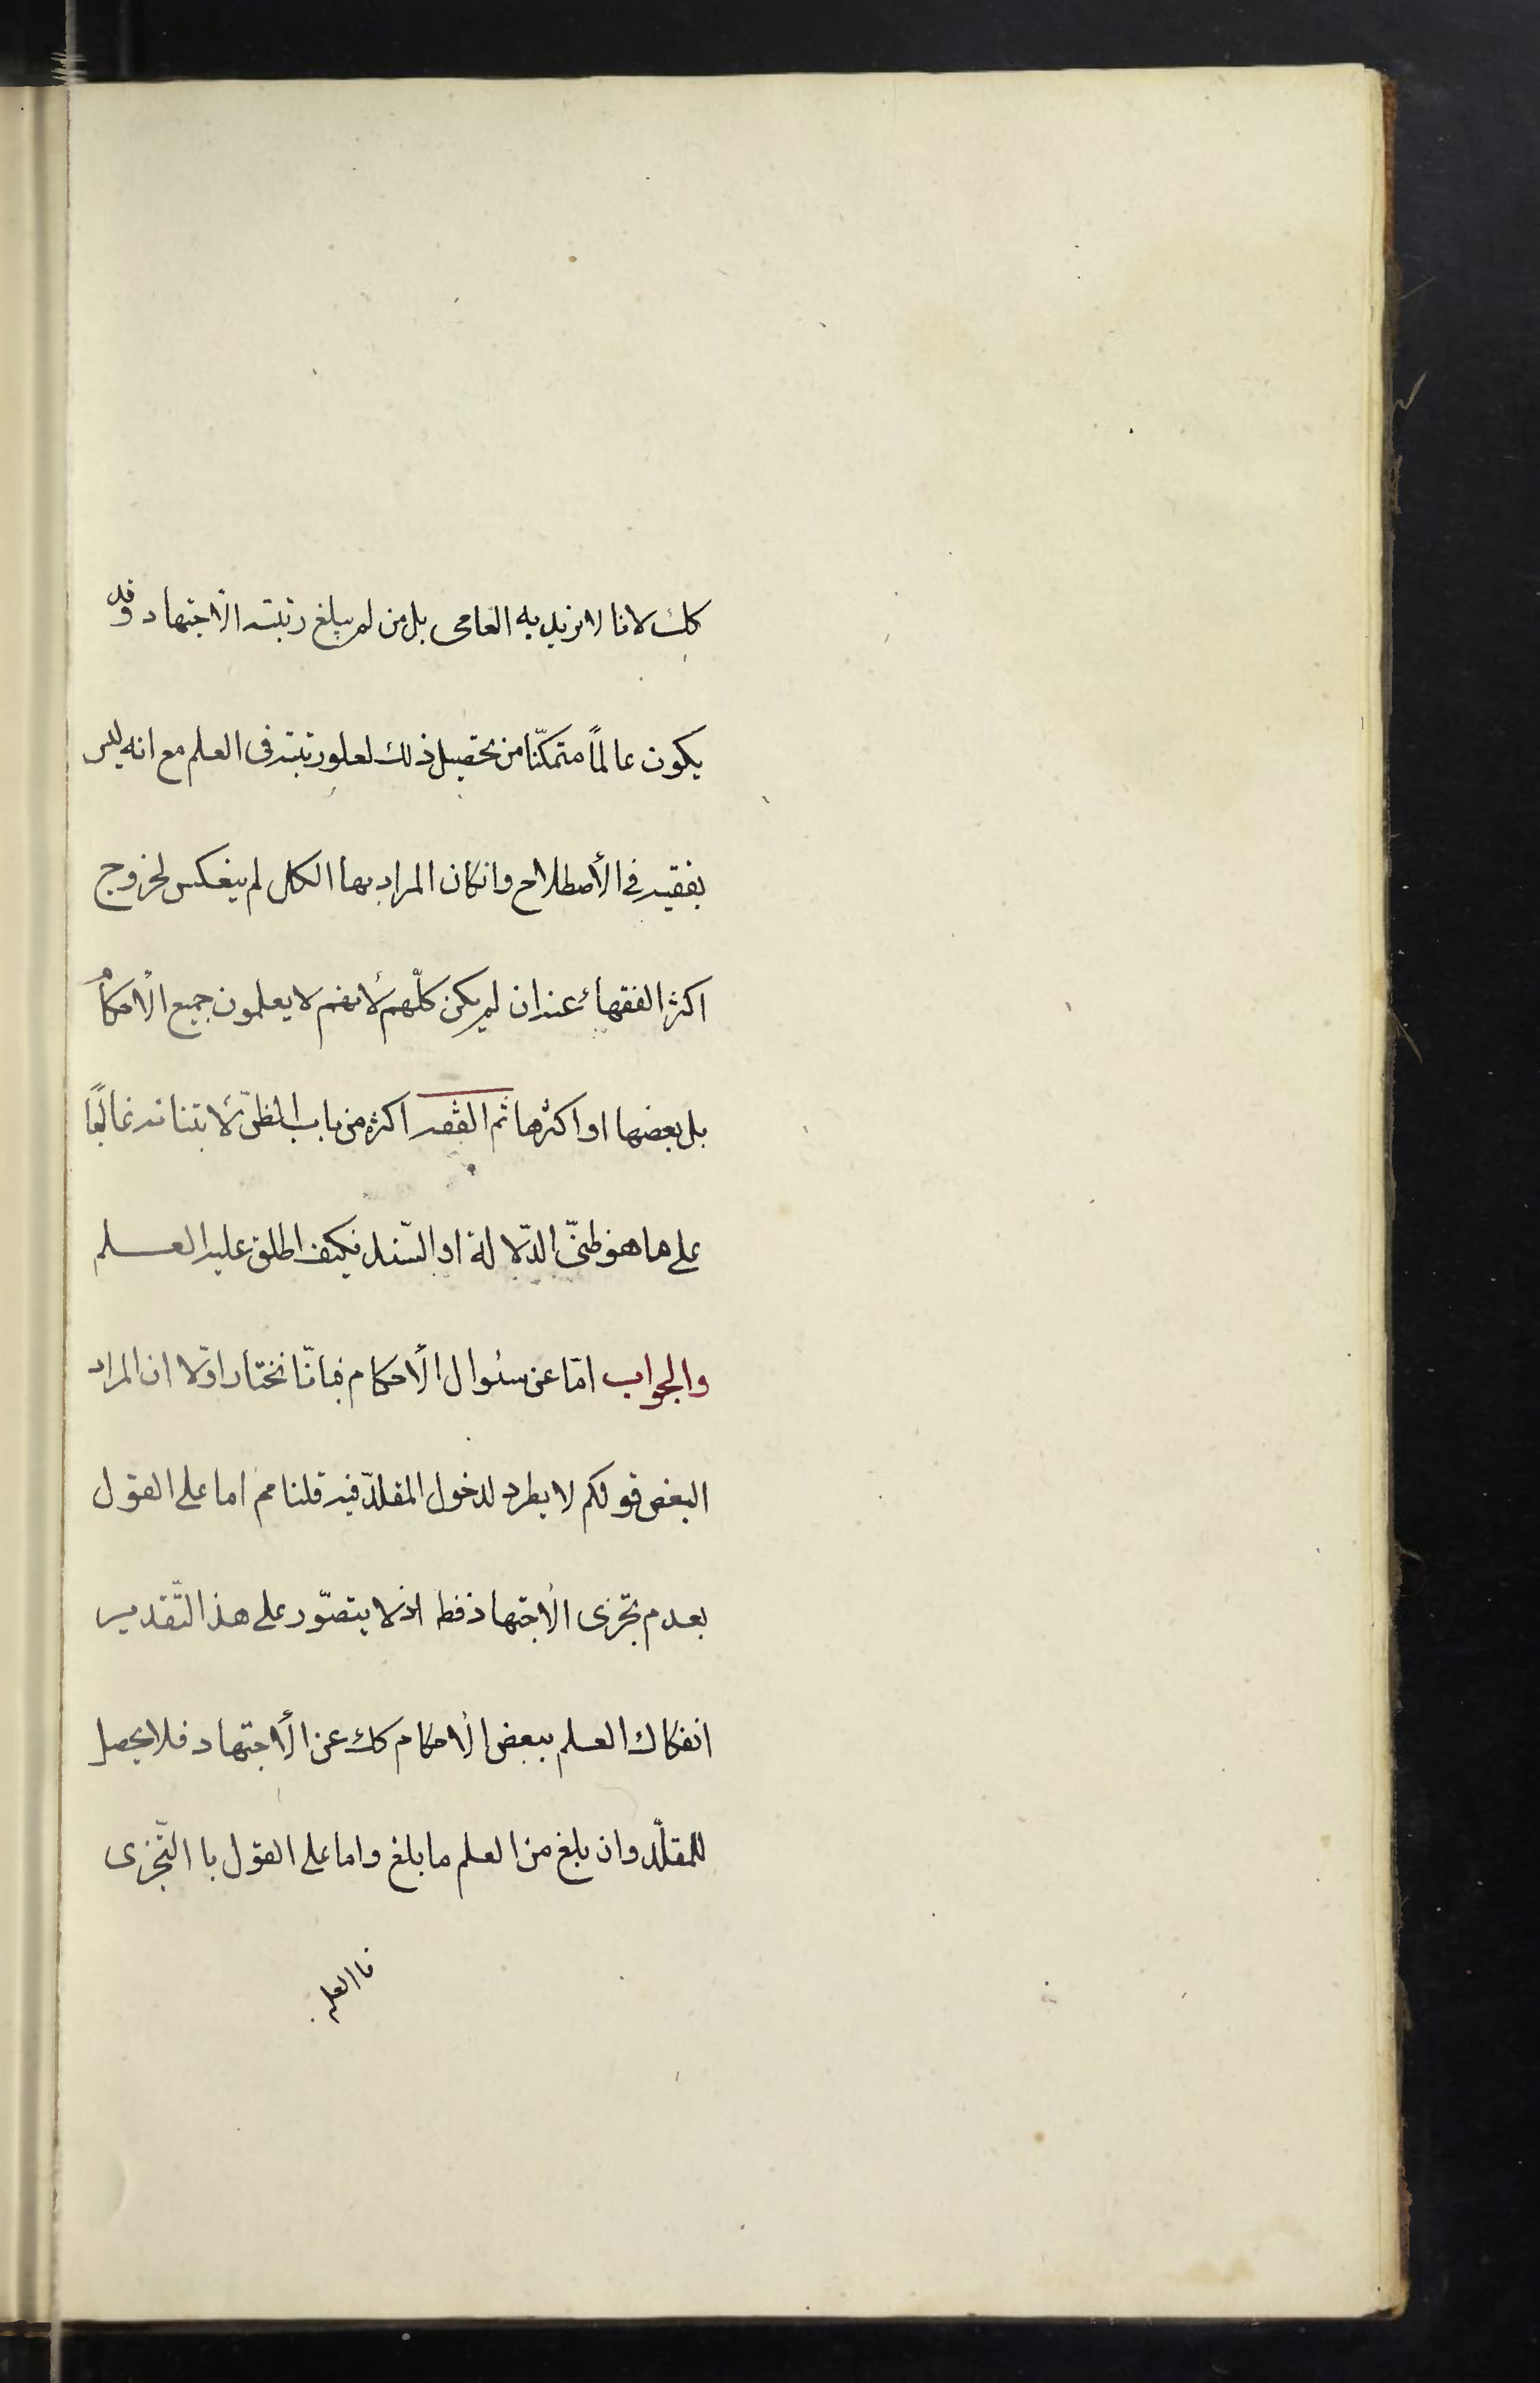 كك لانا لا نريد به العامى بل من لم يبلغ رتبته الاجتهاد وقد
يكون عالمًا متمكّنا من تحصيل ذلك لعلو رتبته فى العلم مع انه ليس
بفقيه فى الأصطلاح وانكان المراد بها الكل لم ينعكس لخروج
اكثر الفقهاء عنه ان لم يكن كلّهم لأنهم لا يعلمون جميع الأحكام
بل بعضها او اكثرها ثم الفقه اكثره من باب الظنّ لأبتنائه غالبًا
على ما هو ظنىّ الدّلالة او السّند فكيف اطلق عليه العلم
والجواب امّا عن سئوال الأحكام فبانّا نختار اوّلا ان المراد
البعض قولكم لا يطرد لدخول المقلّد فيه قلنا مم اما على القول
بعدم تجزى الأجتهاد فظ اذ لا يتصوّر على هذ التّقدير
انفكاك العلم ببعض الأحكام كك عن الأجتهاد فلا يحصل
للمقلّد وان بلغ من العلم ما بلغ واما على القول با التّجزى
فا العلم